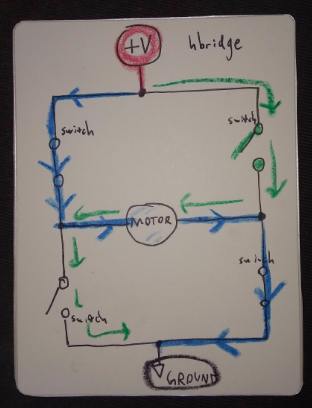 +V
hbridge
switch
switch
MOTOR
switch
switch
GROUND